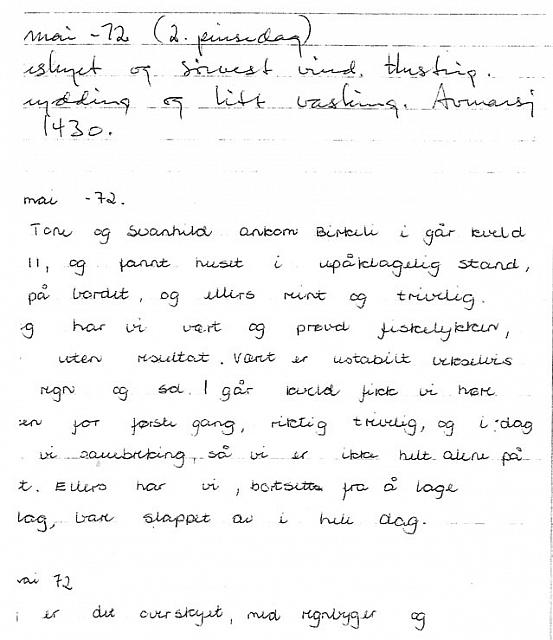 mai -72 (2. pinsedag)
eskyet og sørvest vind. Husting.
rydding og litt vasking. Avmarsj
1430.
mai -72.
Tone og Svanhild ankom Birkeli i går kveld
11, og fannt huset i upåklagelig stand,
på bordet, og ellers reint og trivelig.
g har vi vært og prøvd fiskelykken,
uten resultat. Været er ustabilt vekselvis
regn og sol. I går kveld fikk vi høre
en for første gang, riktig trivelig, og i dag
vi sauebreking, så vi er ikke helt alene på
t. Ellers har vi, bortsett fra å lage
lag, bare slappet av i hele dag.
mai 72
i er det overskyet, med regnbyger og